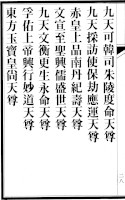 九天可韓司朱陵度命天尊
九天採訪使保劫應運天尊
赤皇上品南丹紀壽天尊
文宣至聖興儒盛世天尊
九天文衡更生永命天尊
孚佑上帝興行妙道天尊
東方玉寶皇上天尊